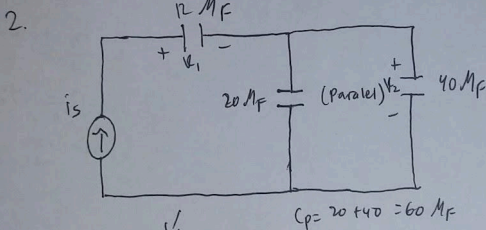 2.
12 MF
+ V1 -
is
20 MF
(Paralel)
+
V2
-
40 MF
Cp = 20 +40 = 60 MF